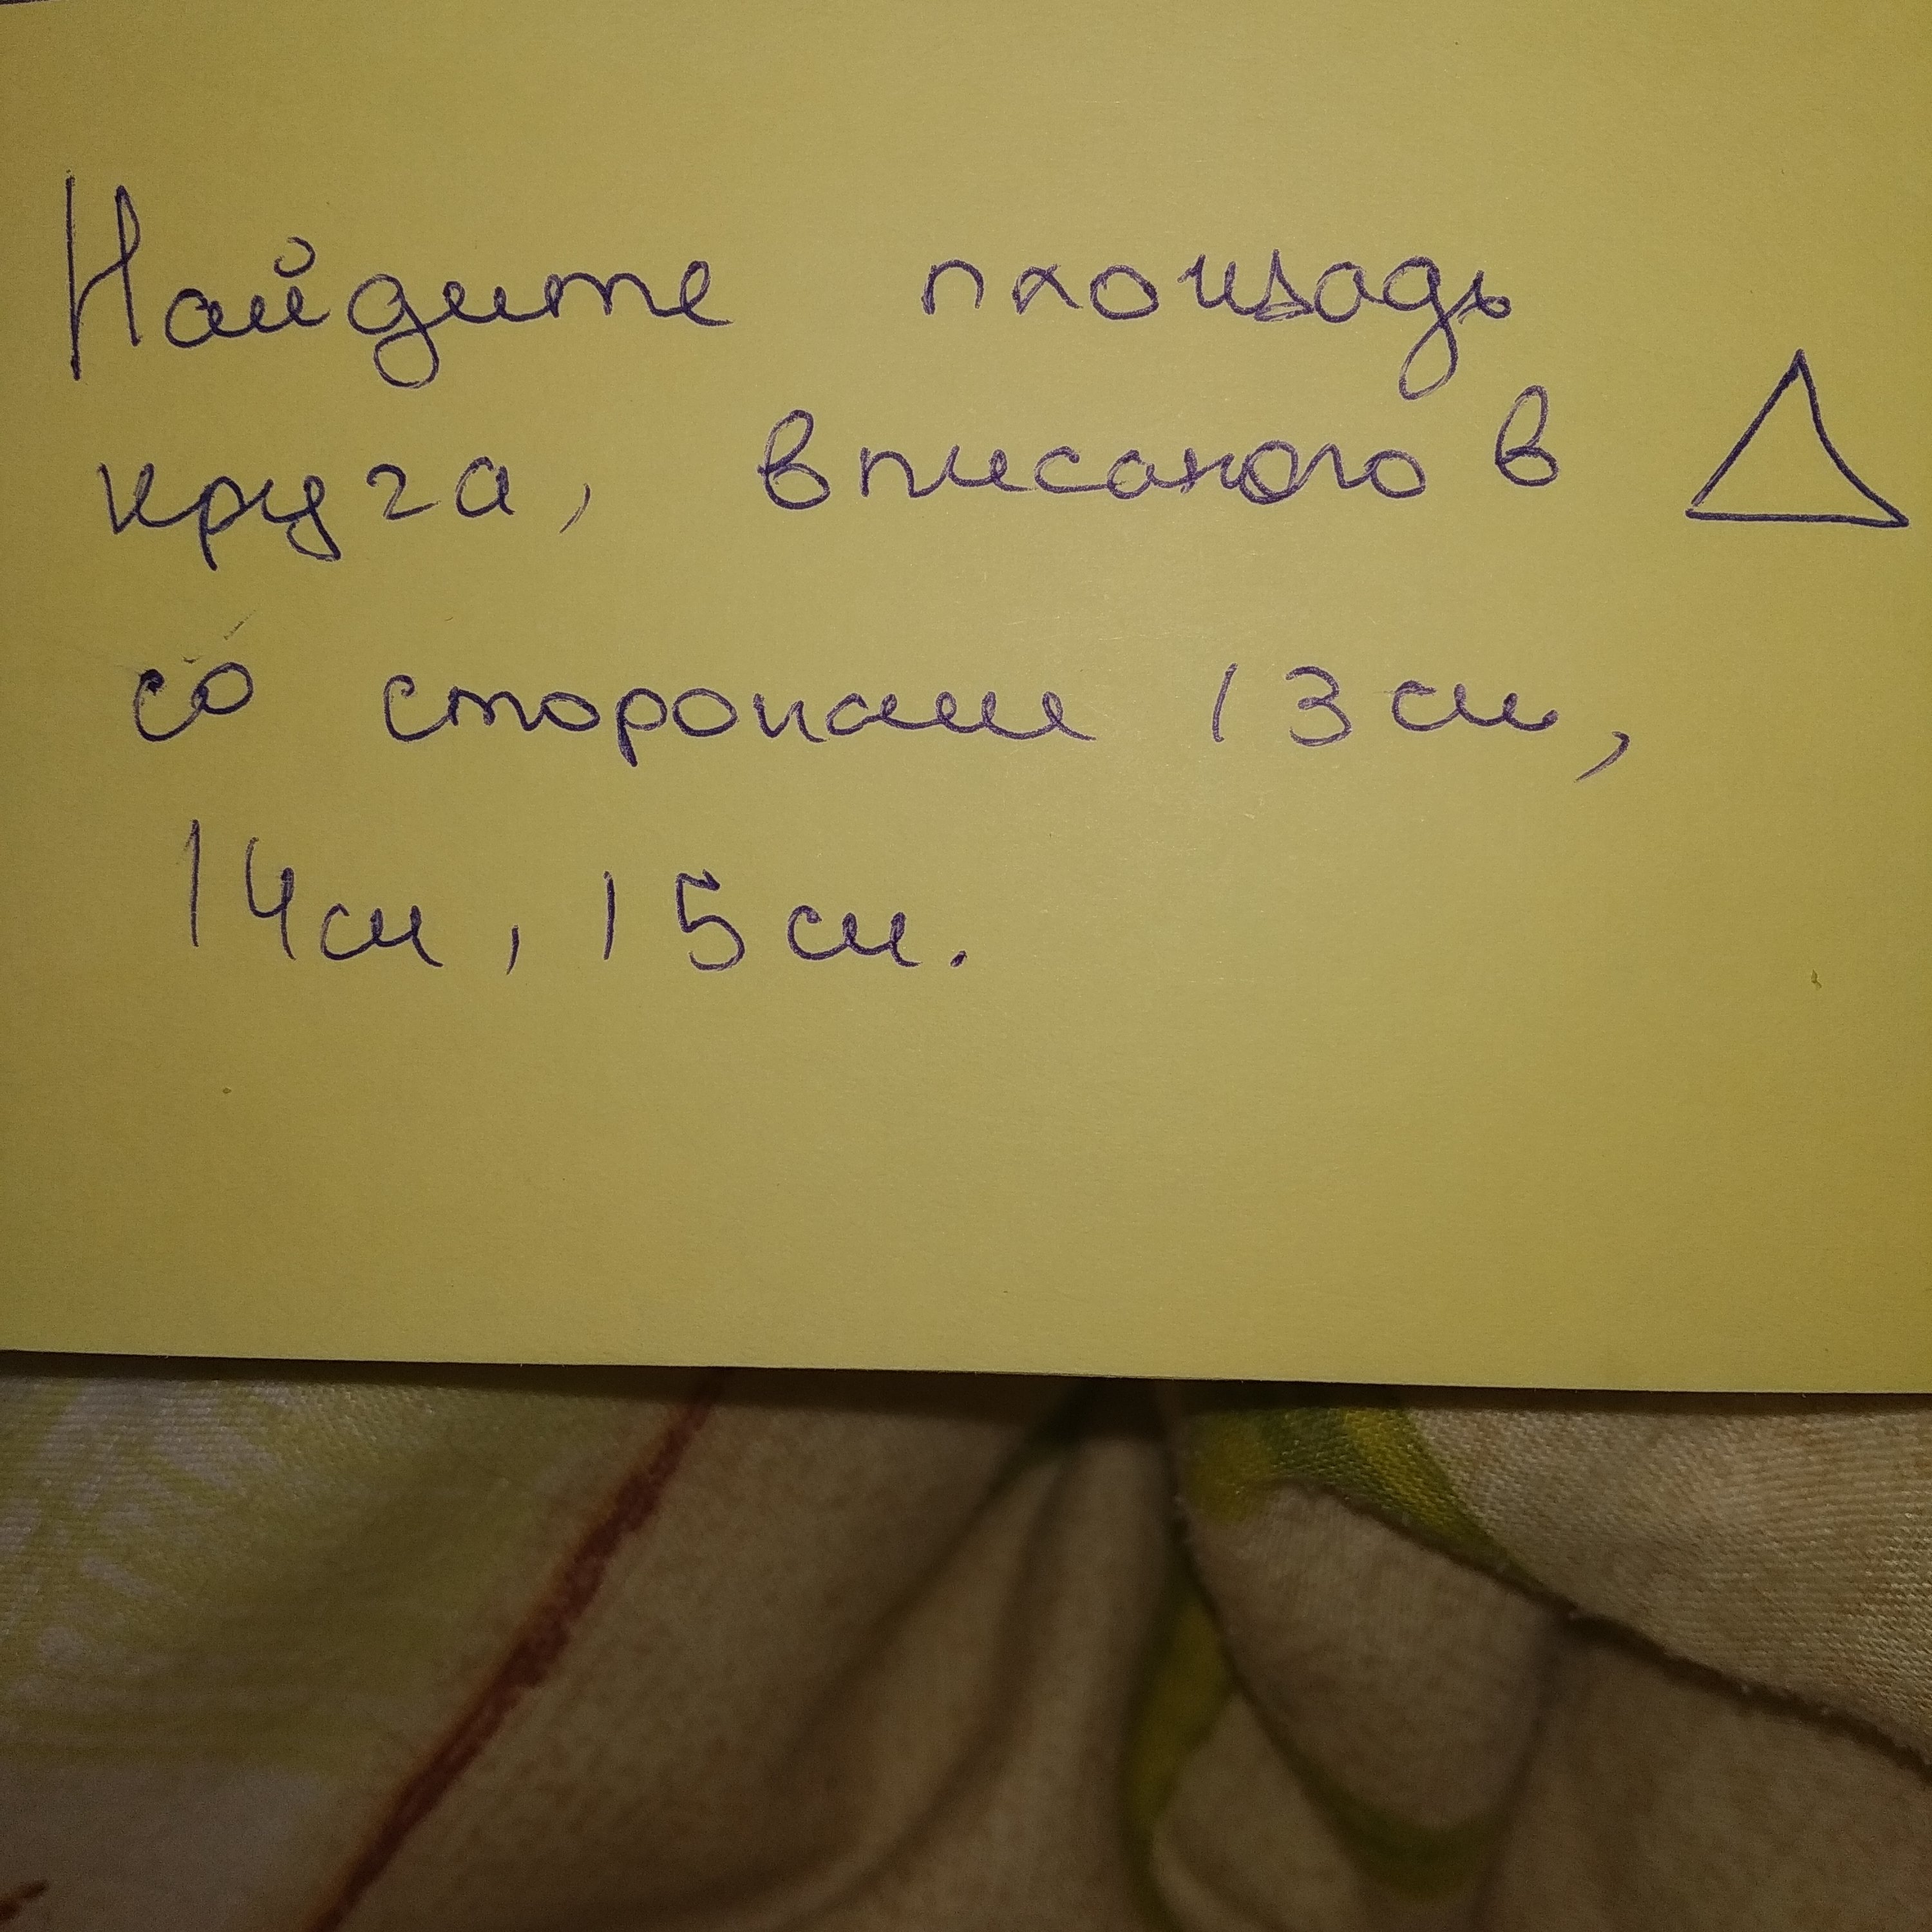 Найдите площадь
круга, вписаного в △
со сторонами 13 см,
14 см, 15 см.